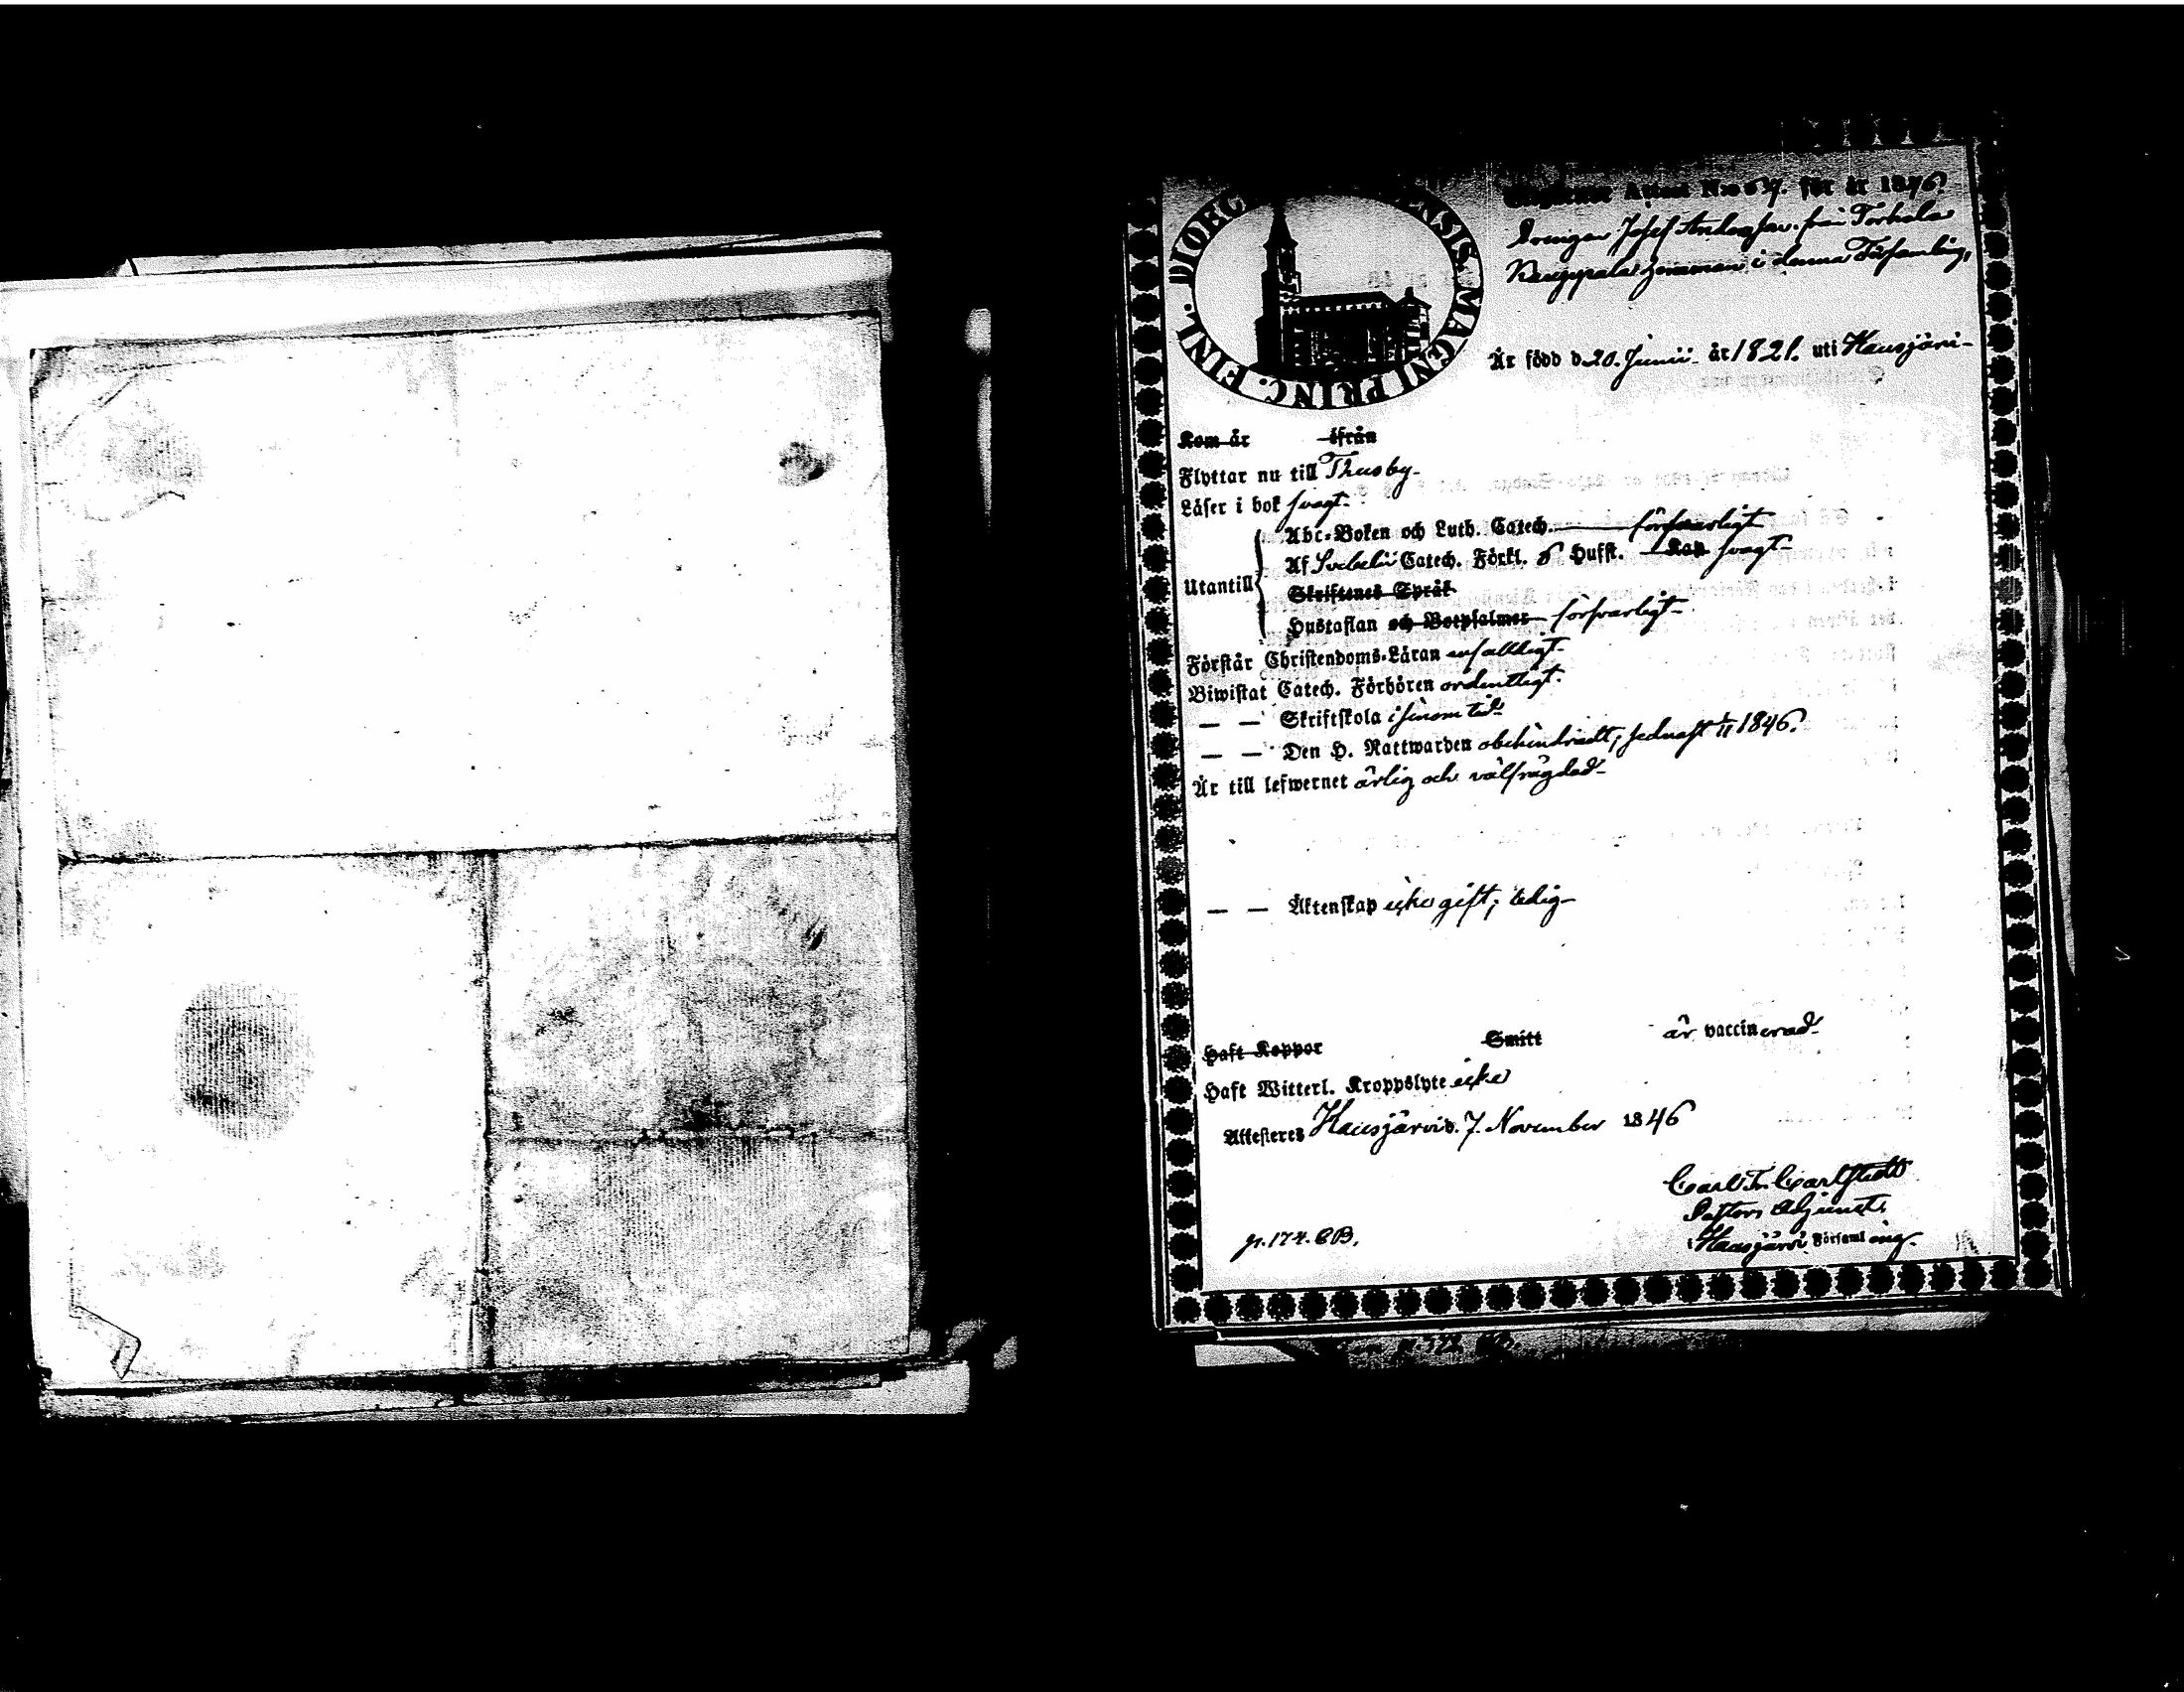 DIOEC ENSIS. MAGNI PRINC. FINL.
Attest N:o 637. för år 1846.
Drengen Josef Andersson från Torhola
Kauppala hemman i denna Församling,
Är född d. 20. Junii år 1821. uti Hausjärvi
Kom år ifrån
Flyttar nu till Thusby
Läser i bok svagt
Utantill
Abc-Boken och Luth. Catech. försvarligt
Af Svebelii Catech. Förkl. 6 Hufst. Kap svagt
Skriftenes Språk
Hustaflan och Botpsalmer försvarligt
Förstår Christendoms-Läran enfalldigt
Biwistat Catech. Förhören ordentligt.
— — Skriftskola i sinom tid
— — Den H. Nattwarden obehindradt, sednast 1/11 1846.
Är till lefwernet ärlig och välfrägdad
— — Äktenskap icke gift; ledig
Haft Koppor Smitt är vaccinerad
Haft Witterl. Kroppslyte icke
Attesteres Hausjärvi d. 7. November 1846
Carl Fr. Carlstedt
Pastors Adjunct.
i Hausjärvi Församling.
p. 174. CB.